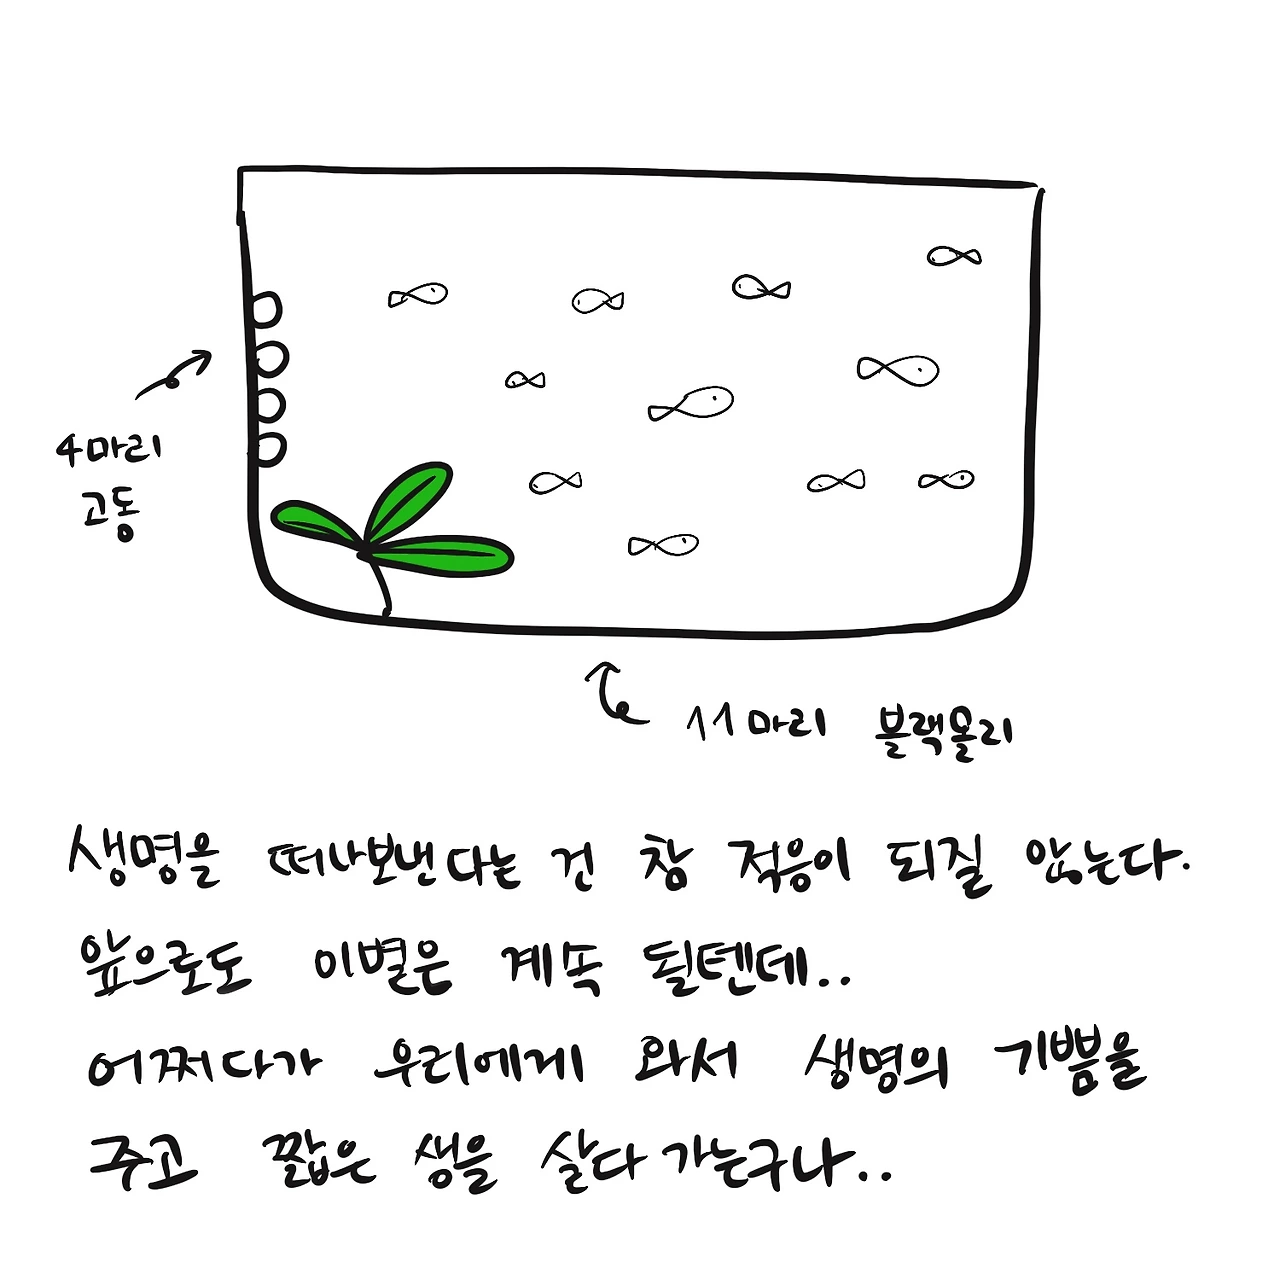 4마리
고동
11마리 블랙몰리
생명을 떠나보낸다는 건 참 적응이 되질 않는다.
앞으로도 이별은 계속 될텐데..
어쩌다가 우리에게 와서 생명의 기쁨을
주고 짧은 생을 살다 가는구나..